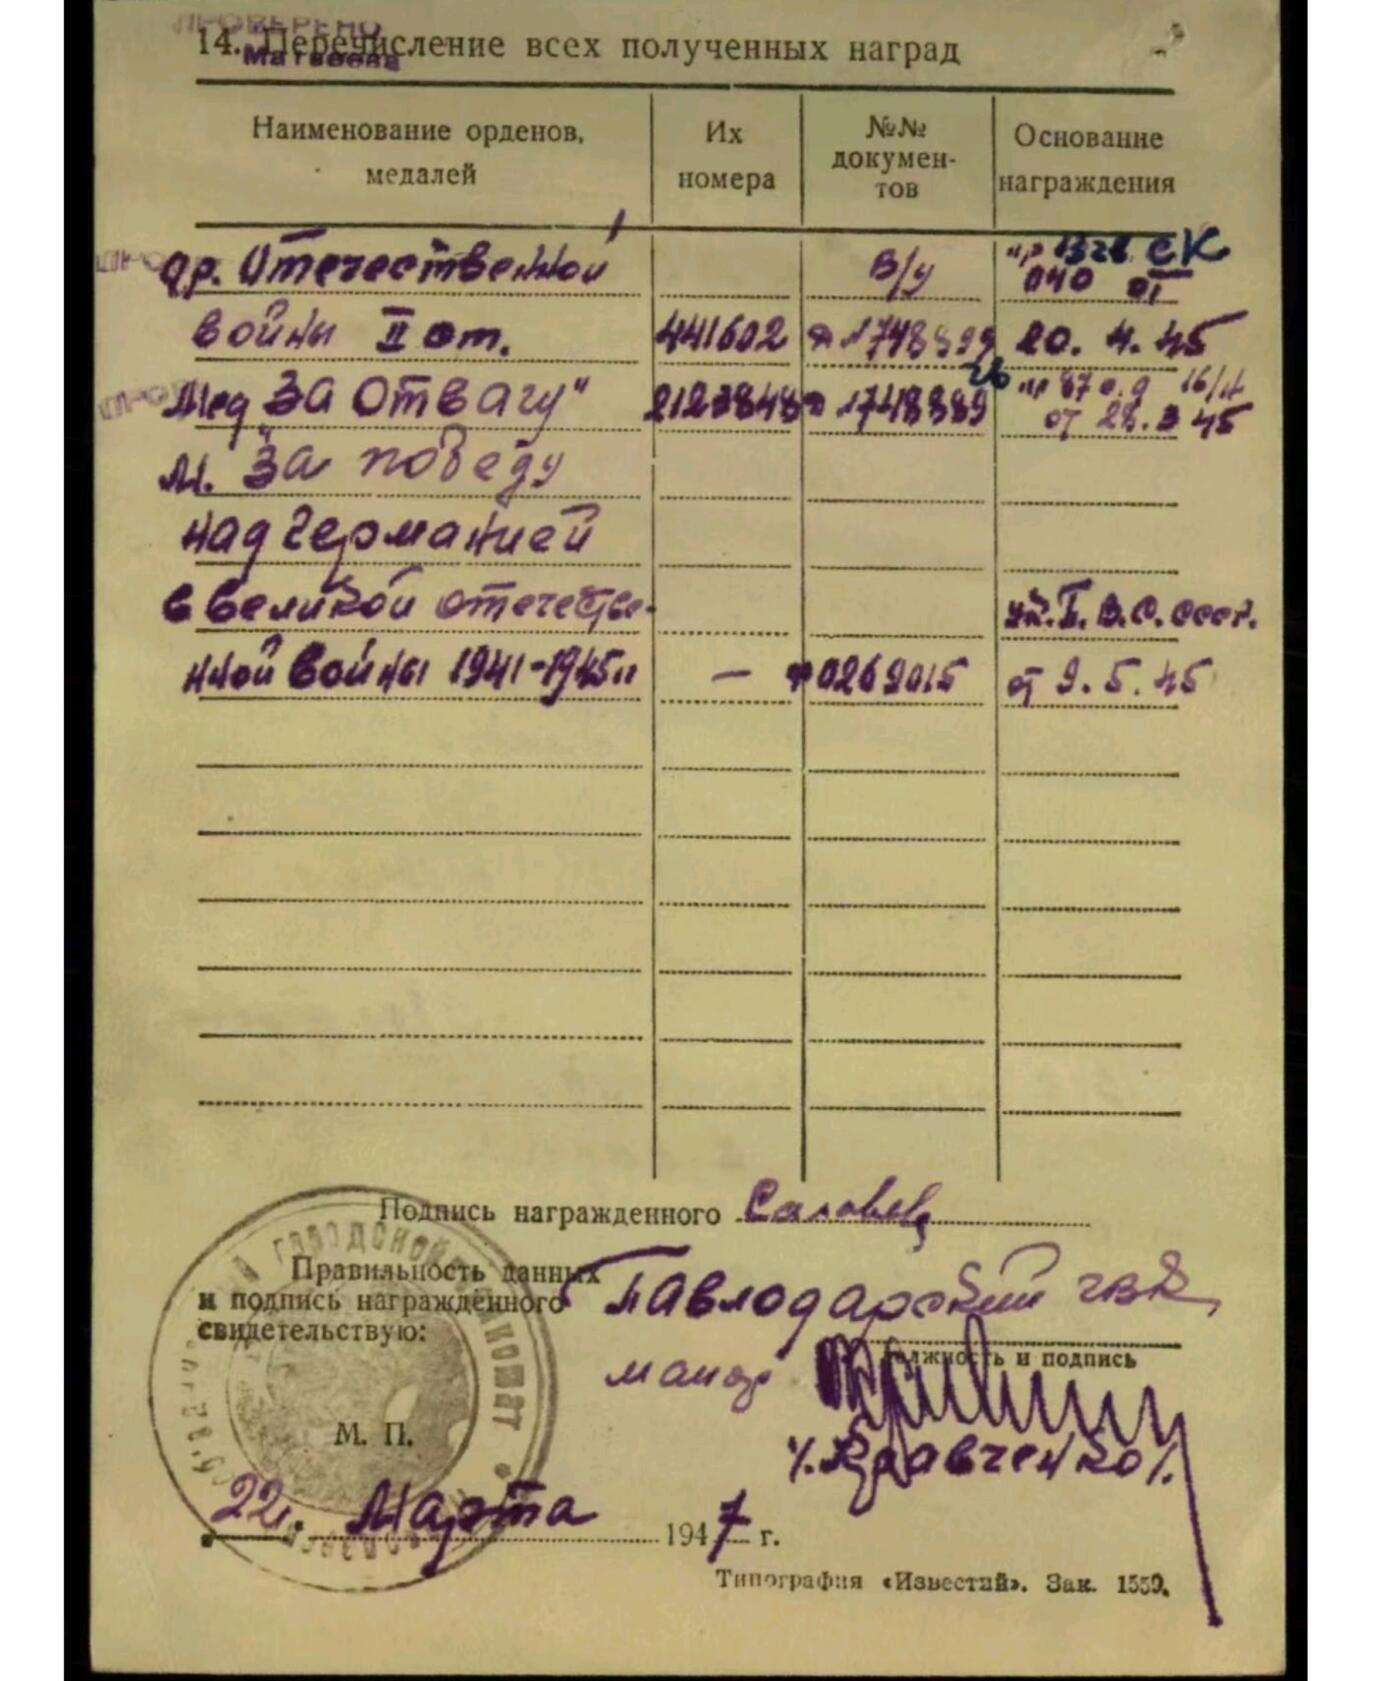 ПРОВЕРЕНО
Матвеева
14. Перечисление всех полученных наград
Наименование орденов, медалей
Их номера
№№ документов
Основание награждения
ор. Отечественной В/у пр 13 гв. СК
040 от
войны II ст. 441602 1748399 20. 4. 45
Мед "За Отвагу" 2123848 1748389 пр 87
от 28. 3 45
М. "За победу
над Германией
в великой отечестве- ук. П. В. С. СССР.
нной войны 1941-1945 — 0269015 от 9. 5. 45
Подпись награжденного
Правильность данных
и подпись награжденного
свидетельствую:
Павлодарский гвк
должность и подпись
майор
/. Кравченко /.
М. П.
22. Марта 1947 г.
Типография «Известий». Зак. 1559.